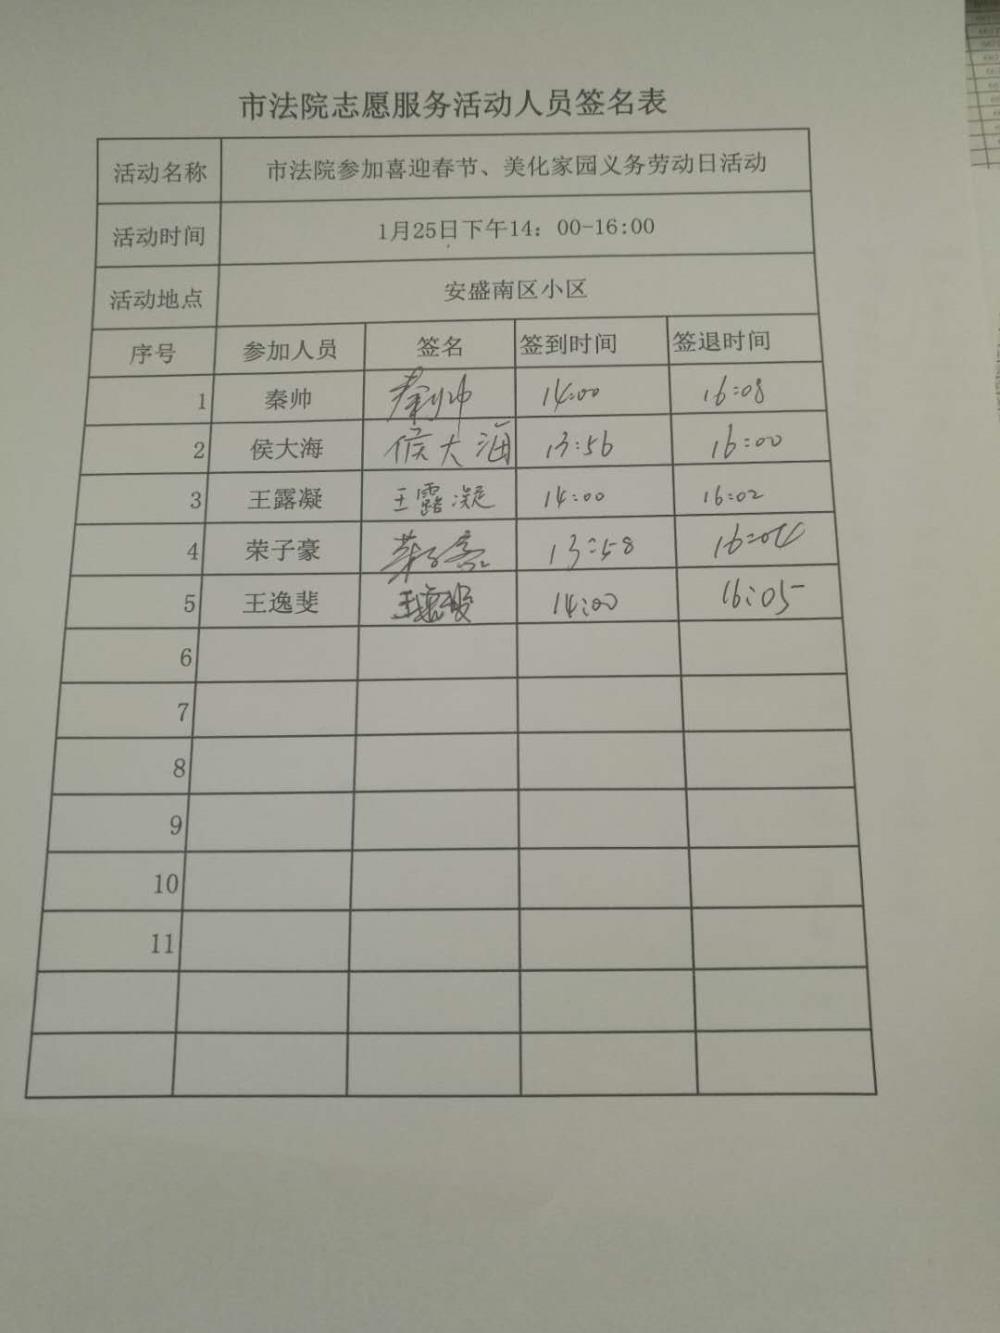 市法院志愿服务活动人员签名表
活动名称 市法院参加喜迎春节、美化家园义务劳动日活动
活动时间 1月25日下午14：00-16:00
活动地点 安盛南区小区
序号 参加人员 签名 签到时间 签退时间
1 秦帅 秦帅 14:00 16:08
2 侯大海 侯大海 13:56 16:00
3 王露凝 王露凝 14:00 16:02
4 荣子豪 荣子豪 13:58 16:04
5 王逸斐 14:00 16:05
6
7
8
9
10
11